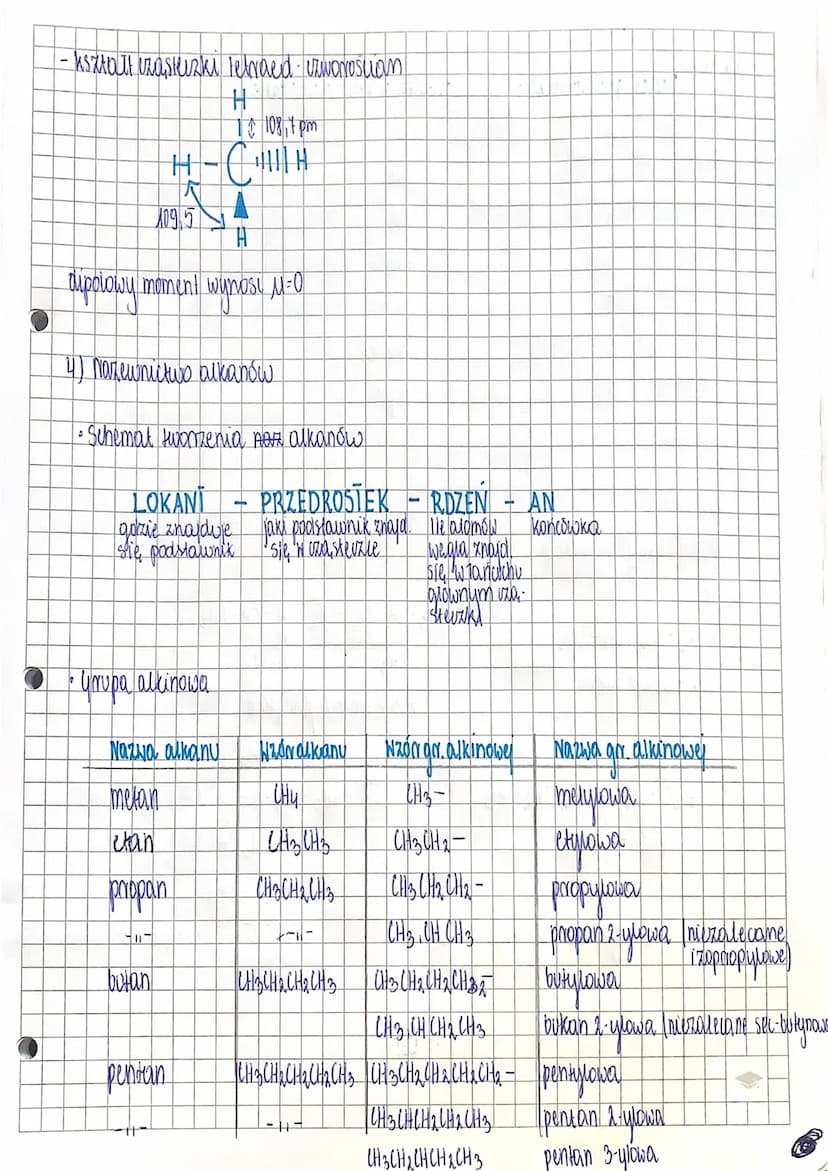 - kształt cząsteczki tetraed. czworościan
H
| ↕ 108,7 pm
H - C ''''||| H
109,5
H
dipolowy moment wynosi μ=0
4) Nazewnictwo alkanów
• Schemat tworzenia alkanów
LOKANT - PRZEDROSTEK - RDZEŃ - AN
gdzie znajduje jaki podstawnik znajd. ile atomów końcówka
się podstawnik się w cząsteczce węgla znajd.
się w łańcuchu
głównym czą-
steczki
• Grupa alkinowa
Nazwa alkanu Wzór alkanu Wzór gr. alkinowej Nazwa gr. alkinowej
metan CH4 CH3- metylowa
etan CH3CH3 CH3CH2- etylowa
propan CH3CH2CH3 CH3CH2CH2- propylowa
-||- -||- CH3CHCH3 propan 2-ylowa (niezalecane
izopropylowe)
butan CH3CH2CH2CH3 CH3CH2CH2CH2- butylowa
CH3CHCH2CH3 bukan 2-ylowa (niezalecane sec-butynowa
pentan CH3CH2CH2CH2CH3 CH3CH2CH2CH2CH2- pentylowa
-||- -||- CH3CHCH2CH2CH3 pentan 2-ylowa
CH3CH2CHCH2CH3 pentan 3-ylowa